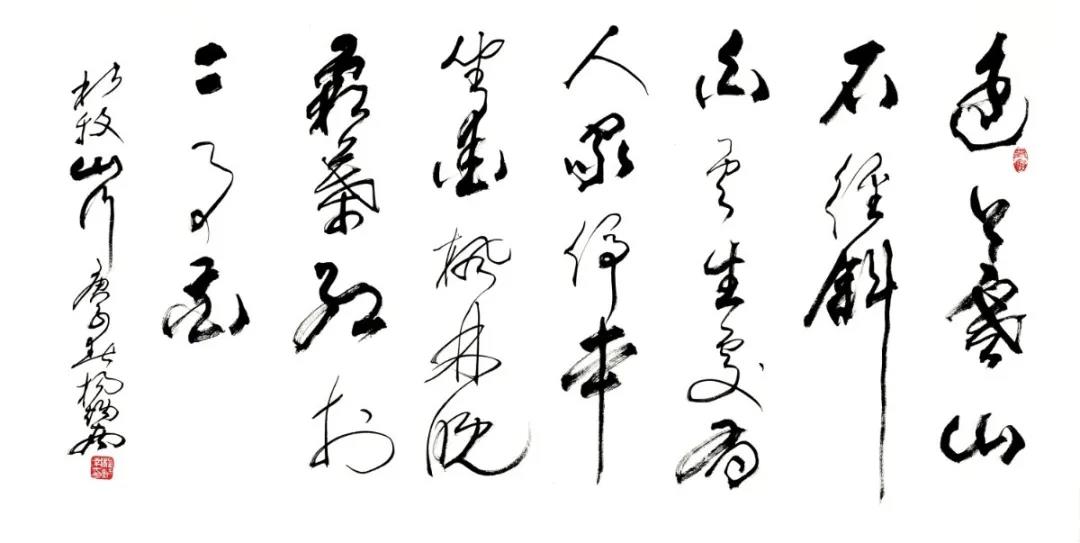 遠上寒山
石徑斜
白雲生處有
人家停車
坐愛楓林晚
霜葉紅於
二月花
杜牧山行 庚子春楊